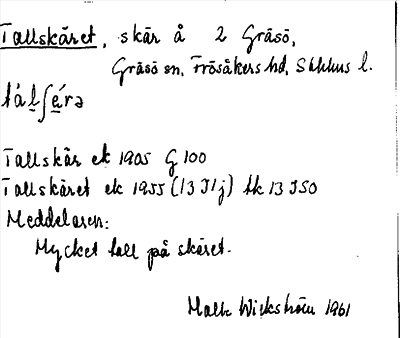 Tallskäret, skär å 2 Gräsö,
Gräsö sn, Frösåkers hd, Sthlms l.
Tallskär ek 1905 G 100
Tallskäret ek 1955 (13 I1j) tk 13 I SO
Meddelaren:
Mycket tall på skäret.
Wickström 1961